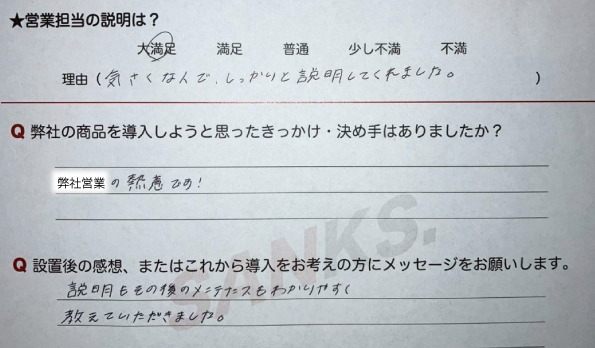 ★営業担当の説明は？
大満足 満足 普通 少し不満 不満
理由（気さくなんで、しっかりと説明してくれました。）
Q 弊社の商品を導入しようと思ったきっかけ・決め手はありましたか？
弊社営業の熱意です！
Q 設置後の感想、またはこれから導入をお考えの方にメッセージをお願いします。
説明もその後のメンテナンスもわかりやすく
教えていただきました。
SANKS.